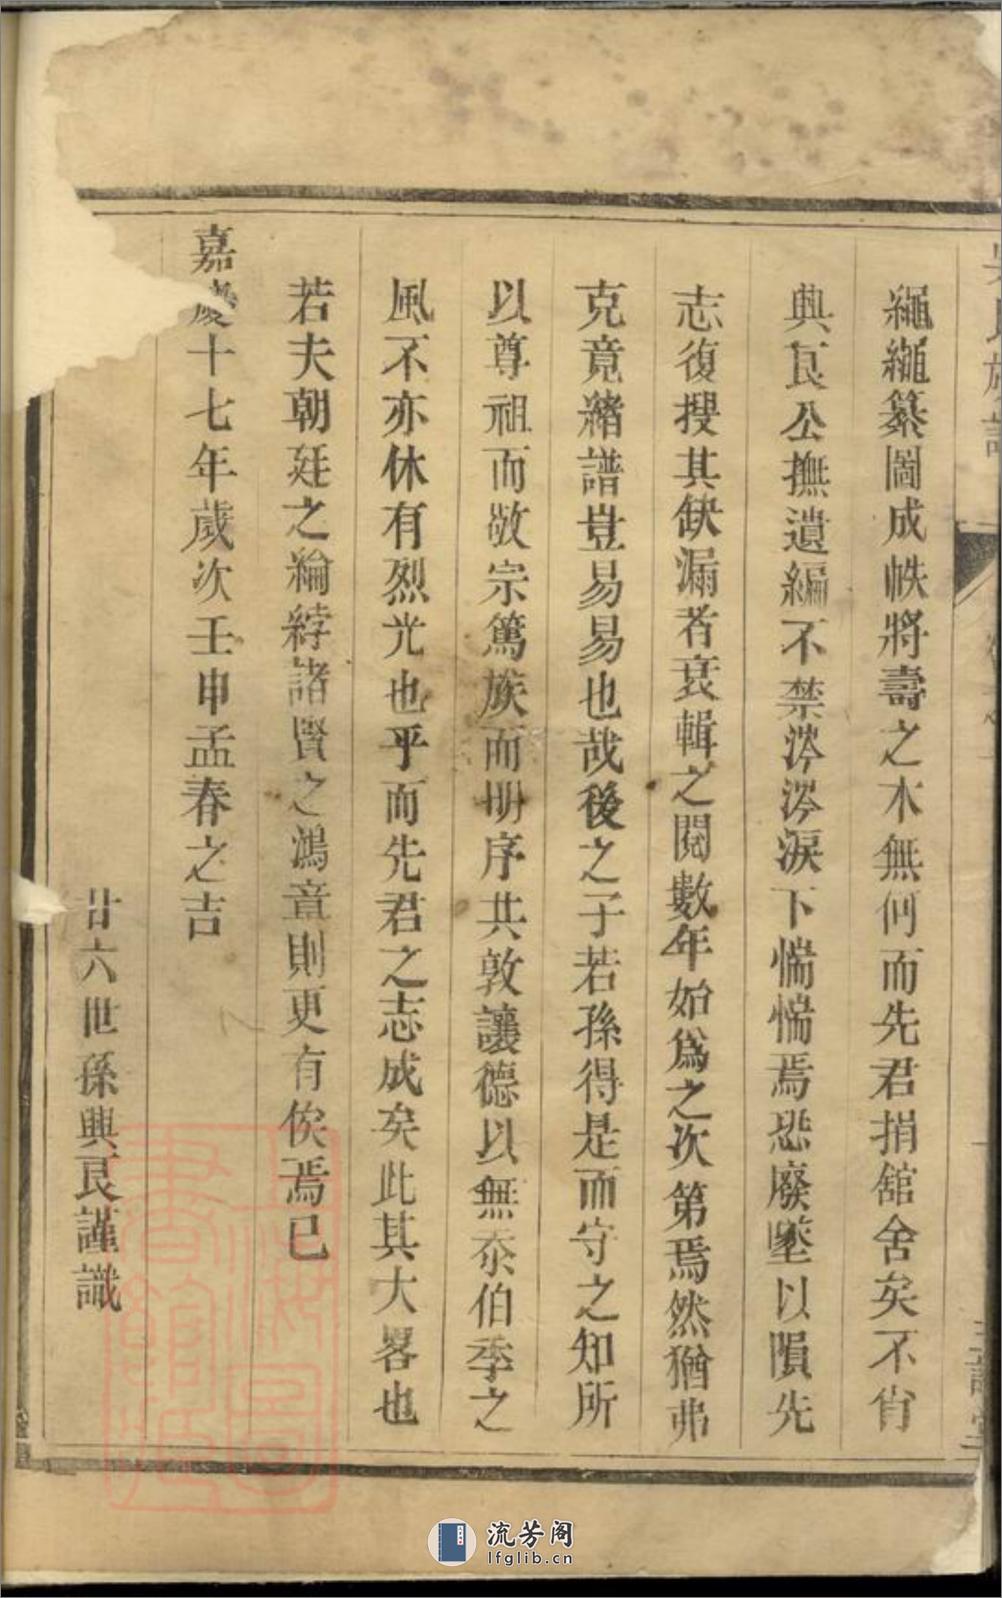 繩繩纂圖成帙將壽之木無何而先君捐舘舍矣不肖
興艮公撫遺編不禁涔涔淚下惴惴焉恐廢墜以隕先
志復搜其缺漏者裒輯之閱數年始爲之次第焉然猶弗
克竟緒譜豈易易也哉後之子若孫得是而守之知所
以尊祖而敬宗篤族而明序共敦讓德以無忝伯季之
風不亦休有烈光也乎而先君之志成矣此其大畧也
若夫朝廷之綸綍諸賢之鴻章則更有俟焉已
嘉慶十七年歲次壬申孟春之吉
廿六世孫興艮謹識
三讓堂
流芳阁
lfglib.cn